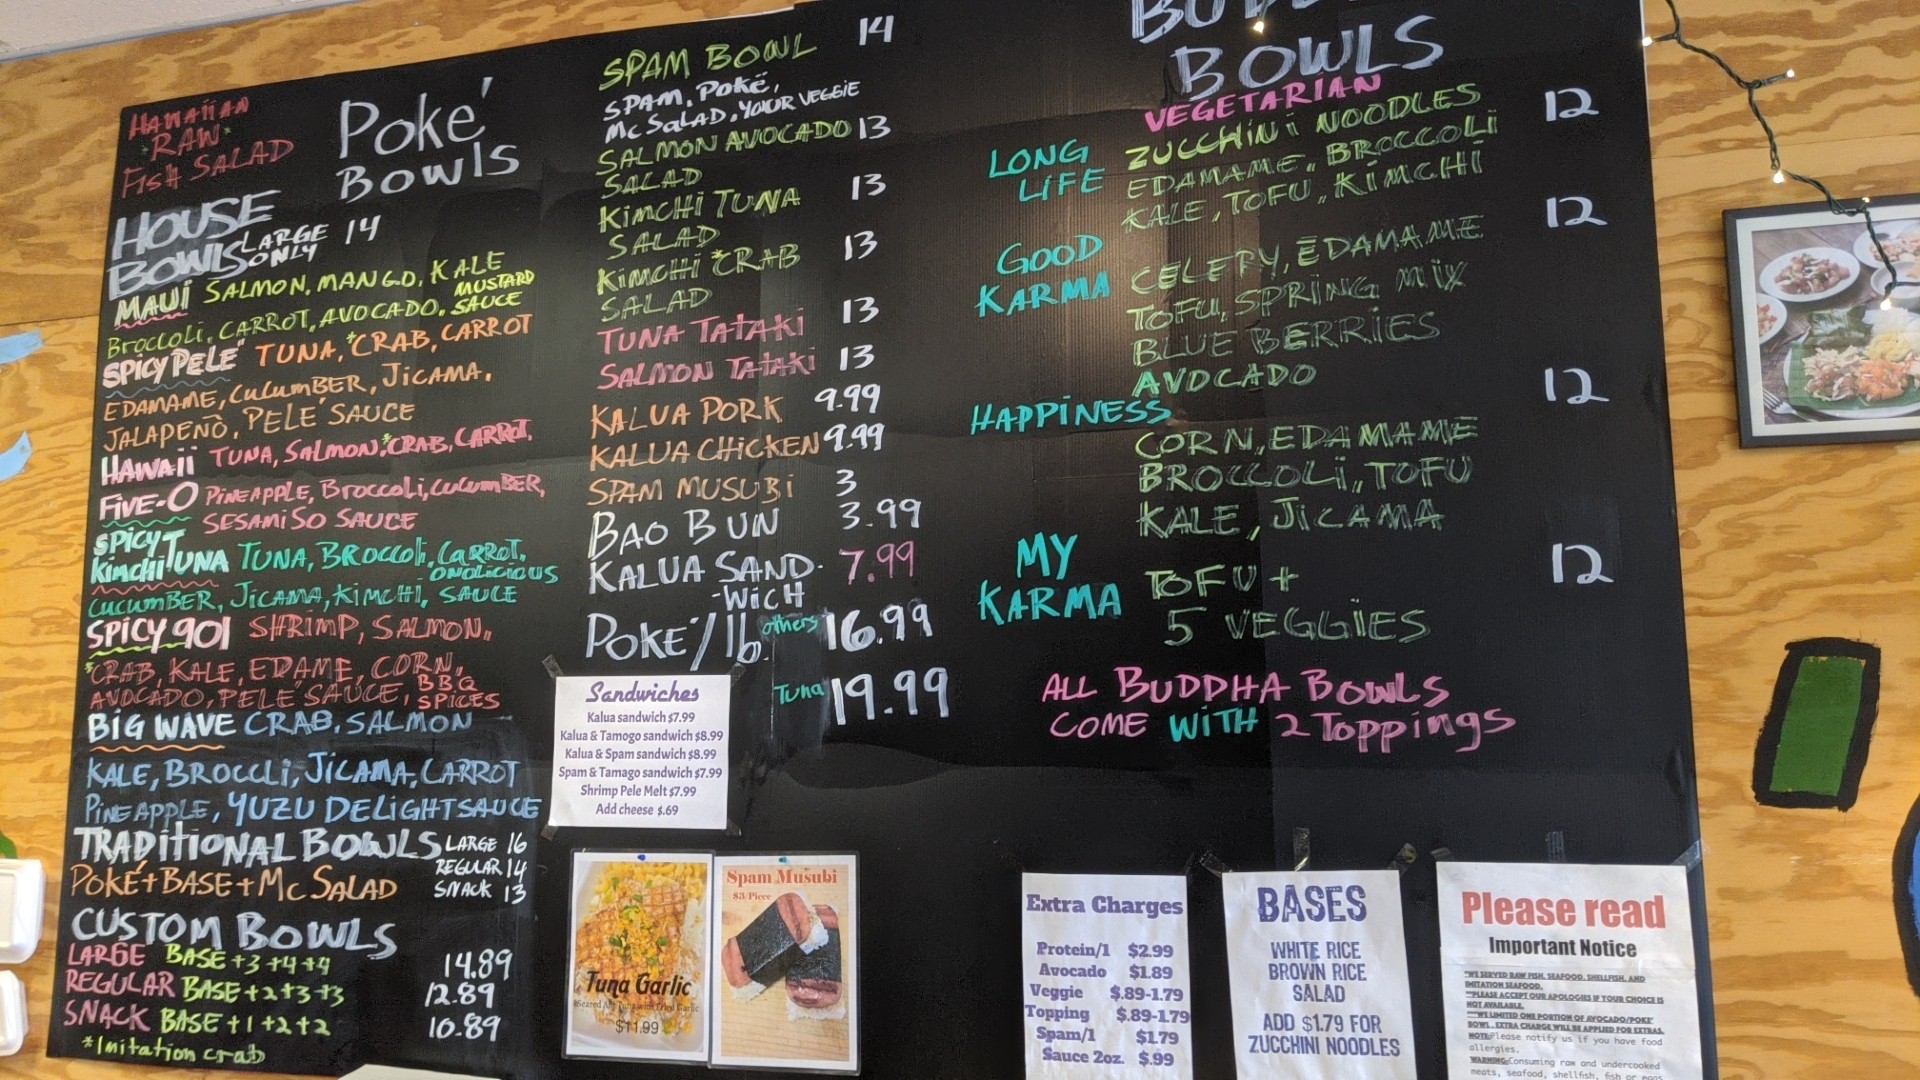 HAWAIIAN
RAW
FISH SALAD
POKE' BOWLS
HOUSE
BOWLS LARGE ONLY 14
MAUI SALMON, MANGO, KALE
BROCCOLI, CARROT, AVOCADO, MUSTARD SAUCE
SPICY PELE" TUNA, *CRAB, CARROT
EDAMAME, CUCUMBER, JICAMA,
JALAPENO, PELE' SAUCE
HAWAII TUNA, SALMON, *CRAB, CARROT,
FIVE-O PINEAPPLE, BROCCOLI, CUCUMBER,
SESAMISO SAUCE
SPICY TUNA
KIMCHI TUNA, BROCCOLI, CARROT,
CUCUMBER, JICAMA, KIMCHI, ONOLICIOUS SAUCE
SPICY 901 SHRIMP, SALMON,
*CRAB, KALE, EDAME, CORN,
AVOCADO, PELE" SAUCE, BBQ SPICES
BIG WAVE CRAB, SALMON
KALE, BROCCLI, JICAMA, CARROT
PINEAPPLE, YUZU DELIGHT SAUCE
TRADITIONAL BOWLS LARGE 16
REGULAR 14
POKE'+BASE+MC SALAD SNACK 13
CUSTOM BOWLS
LARGE BASE+3+4+4 14.89
REGULAR BASE+2+3+3 12.89
SNACK BASE+1+2+2 10.89
*Imitation crab
SPAM BOWL 14
SPAM, POKE,
MC SALAD, YOUR VEGGIE
SALMON AVOCADO 13
SALAD
KIMCHI TUNA 13
SALAD
KIMCHI *CRAB 13
SALAD
TUNA TATAKI 13
SALMON TATAKI 13
KALUA PORK 9.99
KALUA CHICKEN 9.99
SPAM MUSUBI 3
BAO BUN 3.99
KALUA SAND- 7.99
-WICH
POKE'/lb. others 16.99
Tuna 19.99
Sandwiches
Kalua sandwich $7.99
Kalua & Tamogo sandwich $8.99
Kalua & Spam sandwich $8.99
Spam & Tamago sandwich $7.99
Shrimp Pele Melt $7.99
Add cheese $.69
Tuna Garlic
$11.99
Spam Musubi
$3/Piece
BOWLS
VEGETARIAN
LONG LIFE ZUCCHINI NOODLES 12
EDAMAME, BROCCOLI
KALE, TOFU, KIMCHI
GOOD KARMA CELERY, EDAMAME 12
TOFU, SPRING MIX
BLUE BERRIES
AVOCADO
HAPPINESS 12
CORN, EDAMAME
BROCCOLI, TOFU
KALE, JICAMA
MY KARMA TOFU + 12
5 VEGGIES
ALL BUDDHA BOWLS
COME WITH 2 Toppings
Extra Charges
Protein/1 $2.99
Avocado $1.89
Veggie $.89-1.79
Topping $.89-1.79
Spam/1 $1.79
Sauce 2oz. $.99
BASES
WHITE RICE
BROWN RICE
SALAD
ADD $1.79 FOR
ZUCCHINI NOODLES
Please read
Important Notice
*WE SERVED RAW FISH, SEAFOOD, SHELLFISH, AND
IMITATION SEAFOOD.
**PLEASE ACCEPT OUR APOLOGIES IF YOUR CHOICE IS
NOT AVAILABLE.
***WE LIMITED ONE PORTION OF AVOCADO/POKE'
BOWL. EXTRA CHARGE WILL BE APPLIED FOR EXTRAS.
NOTE:Please notify us if you have food
allergies.
WARNING:Consuming raw and undercooked
meats, seafood, shellfish, fish or eggs